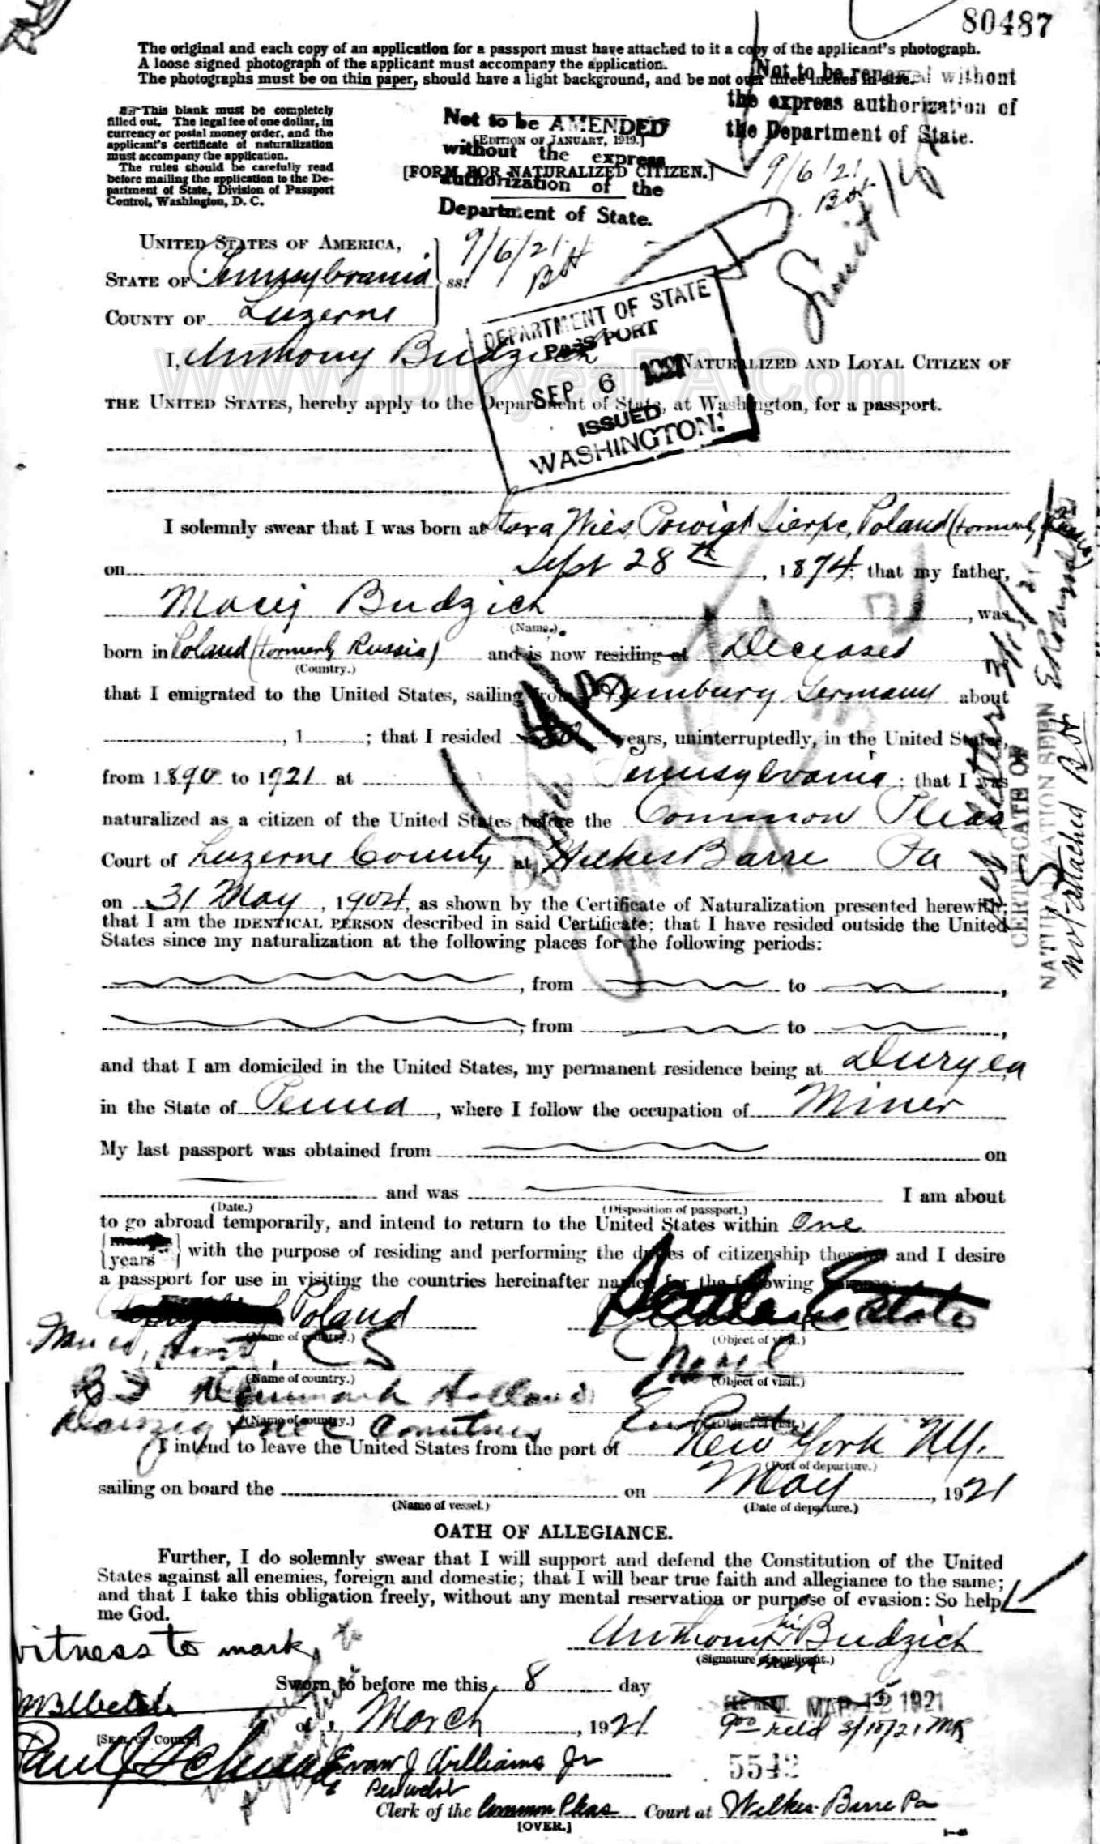 80487
The original and each copy of an application for a passport must have attached to it a copy of the applicant's photograph.
A loose signed photograph of the applicant must accompany the application.
The photographs must be on thin paper, should have a light background, and be not over three inches in size.
Not to be renewed without
the express authorization of
the Department of State.
9/6/21
This blank must be completely
filled out. The legal fee of one dollar, in
currency or postal money order, and the
applicant's certificate of naturalization
must accompany the application.
The rules should be carefully read
before mailing the application to the De-
partment of State, Division of Passport
Control, Washington, D. C.
Not to be AMENDED
[EDITION OF JANUARY, 1919.]
without the express
[FORM FOR NATURALIZED CITIZEN.]
authorization of the
Department of State.
9/6/21
UNITED STATES OF AMERICA,
STATE OF Pennsylvania
ss:
COUNTY OF Luzerne
DEPARTMENT OF STATE
PASSPORT
SEP 6 1921
ISSUED
WASHINGTON.
www.DuryeaPA.Com
I, Anthony Budzich NATURALIZED AND LOYAL CITIZEN OF
THE UNITED STATES, hereby apply to the Department of State, at Washington, for a passport.
I solemnly swear that I was born at Poland (formerly
on Sept 28th, 1874; that my father,
Macij Budzich, was
(Name.)
born in Poland (formerly Russia) and is now residing at Deceased
(Country.)
that I emigrated to the United States, sailing from Hamburg Germany about
, 1 ; that I resided years, uninterruptedly, in the United States,
from 1890 to 1921 at Pennsylvania; that I was
naturalized as a citizen of the United States before the Common Pleas
Court of Luzerne County at Wilkes Barre Pa
on 31 May, 1904, as shown by the Certificate of Naturalization presented herewith;
that I am the IDENTICAL PERSON described in said Certificate; that I have resided outside the United
States since my naturalization at the following places for the following periods:
, from to ,
, from to ,
CERTIFICATE OF
NATURALIZATION SEEN
not attached
and that I am domiciled in the United States, my permanent residence being at Duryea
in the State of Penna, where I follow the occupation of Miner
My last passport was obtained from on
and was I am about
(Date.) (Disposition of passport.)
to go abroad temporarily, and intend to return to the United States within One
months
years with the purpose of residing and performing the duties of citizenship therein; and I desire
a passport for use in visiting the countries hereinafter named for the following purpose:
Poland Settle Estate
(Name of country.) (Object of visit.)
(Name of country.) (Object of visit.)
Denmark Holland
(Name of country.) (Object of visit.)
Danzig
I intend to leave the United States from the port of New York N.Y.
(Port of departure.)
sailing on board the on May, 1921
(Name of vessel.) (Date of departure.)
OATH OF ALLEGIANCE.
Further, I do solemnly swear that I will support and defend the Constitution of the United
States against all enemies, foreign and domestic; that I will bear true faith and allegiance to the same;
and that I take this obligation freely, without any mental reservation or purpose of evasion: So help
me God.
witness to mark
Anthony his Budzich
(Signature of applicant.)
mark
Sworn to before me this 8 day
of March, 1921
MAR 12 1921
[Seal of Court]
Paul J
Evan J Williams Jr
5542
Clerk of the Common Pleas Court at Wilkes-Barre Pa
[OVER.]